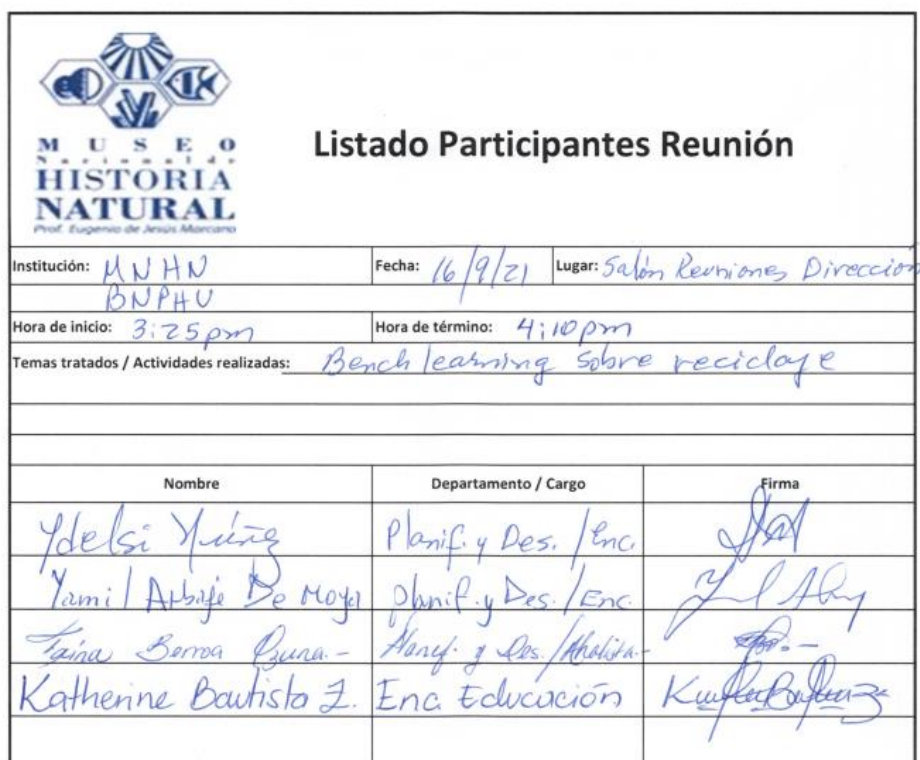 MUSEO
Nacional de
HISTORIA
NATURAL
Prof. Eugenio de Jesús Marcano
Listado Participantes Reunión
Institución: MNHN
BNPHU
Fecha: 16/9/21
Lugar: Salón Reuniones Dirección
Hora de inicio: 3:25pm
Hora de término: 4:10pm
Temas tratados / Actividades realizadas: Bench learning sobre reciclaje
Nombre Departamento / Cargo Firma
Ydelsi Núñez Planif. y Des. /Enc.
Yamil Arbaje De Moya planif. y Des./Enc.
Berroa Planif. y Des./Analista-
Katherine Bautista Z. Enc. Educación